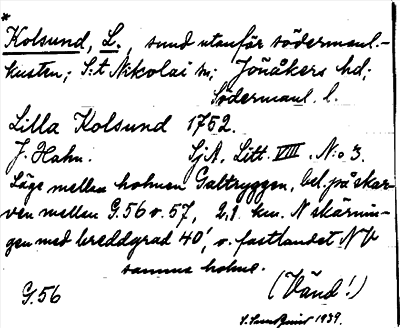 *
Kolsund, L., sund utanför södermanl.-
kusten; S:t Nikolai sn; Jönåkers hd;
Södermanl. l.
Lilla Kolsund 1752.
J. Hahn. SjA, Litt. VIII. N:o 3.
Läge mellan holmen Galtryggen, bel. på skär-
ven mellan G.56 o. 57, 2,1 km. N skärnin-
gen med breddgrad 40', o. fastlandet NV
samma holme.
(Vänd!)
G.56
1939.